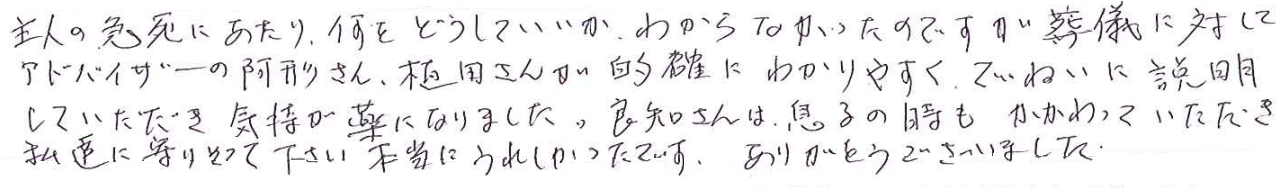 主人の急死にあたり、何をどうしていいか、わからなかったのですが葬儀に対して
アドバイザーの阿形さん、植田さんが的確にわかりやすく、ていねいに説明
していただき気持が薬になりました。良知さんは、息子の時もかかわっていただき
私達に寄りそって下さい本当にうれしかったです、ありがとうございました.